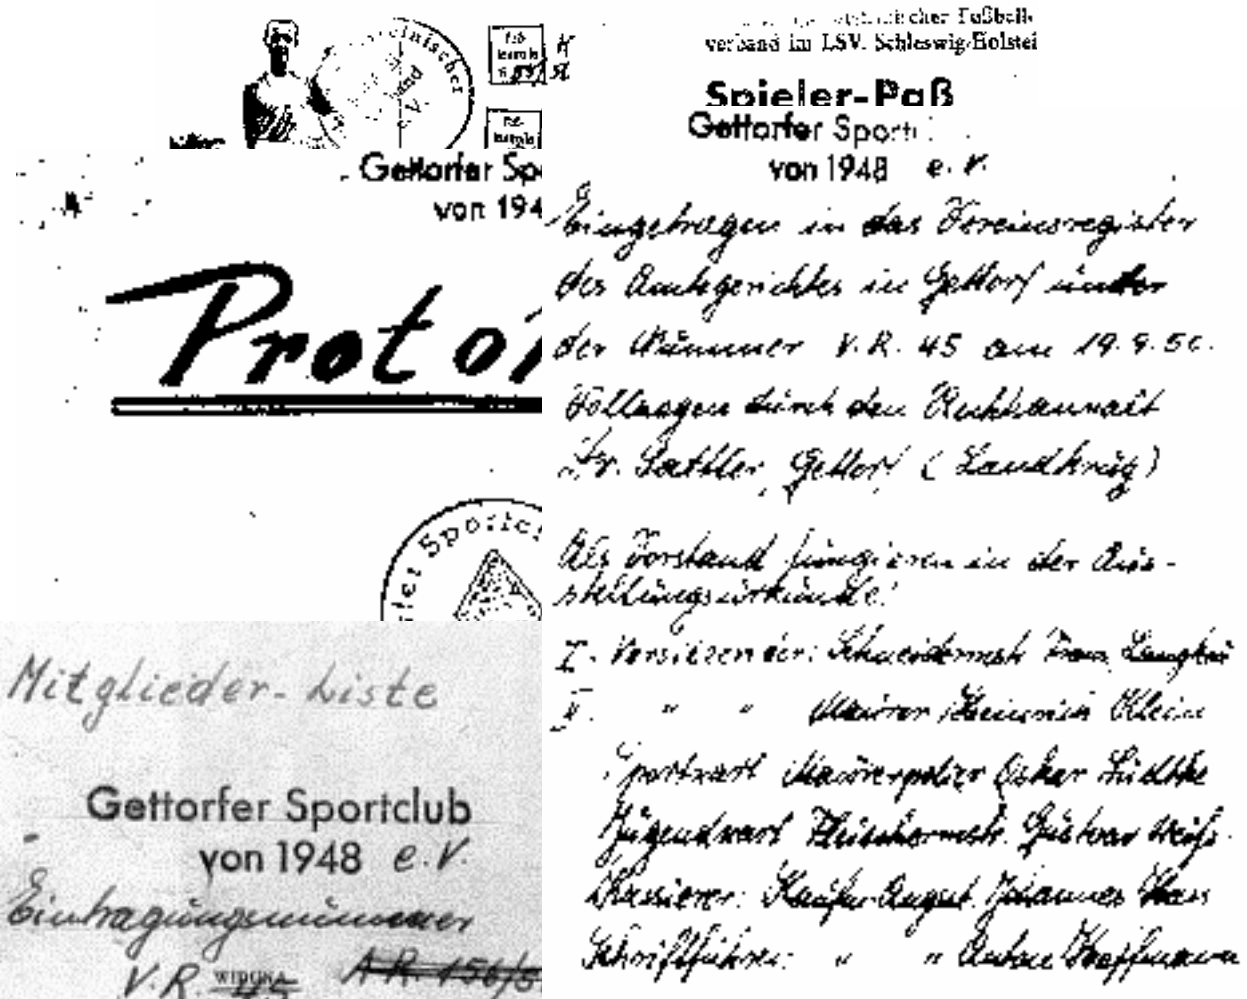 verband im LSV. Schleswig-Holstei
Spieler-Paß
Gettorfer Sport
von 1948 e.V.
Gettorfer Sp
von 194
Protok
Eingetragen in das Vereinsregister
des Amtsgerichtes in Gettorf unter
der Nummer V.R. 45 am 19.9.50.
Vollzogen durch den Rechtsanwalt
Dr. Sattler, Gettorf (Landkrug)
Als Vorstand fungieren in der Aus-
stellungsurkunde:
I. Vorsitzender: Schneidermstr. Franz
II. " " Maurer Heinrich Klein
Sportwart Maurerpolier Oskar Lüdtke
Jugendwart Fleischermstr. Gustav Weiß.
Kassierer: Kaufm. Angest. Johannes
Schriftführer: " " Hoffmann
Mitglieder-Liste
Gettorfer Sportclub
von 1948 e.V.
Eintragungsnummer
V.R. 45 A.R. 156/5